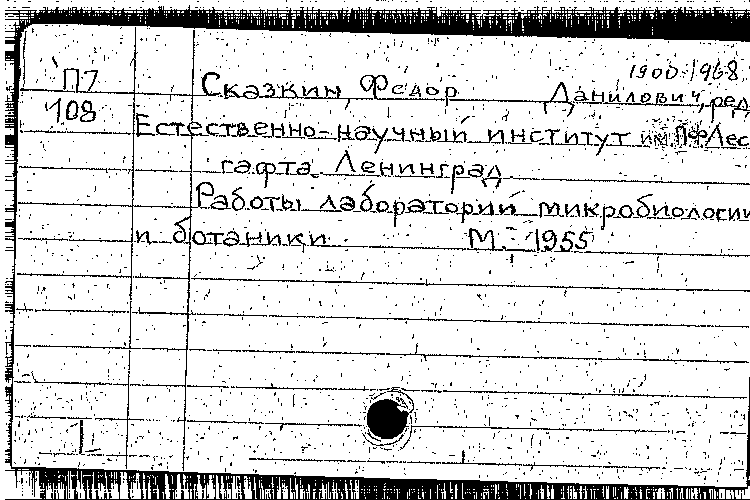 1900-1968
П7 Сказкин, Федор Данилович, ред.
108
Естественно-научный институт им. П.Ф. Лес-
гафта. Ленинград
Работы лабораторий микробиологии
и ботаники. М. 1955